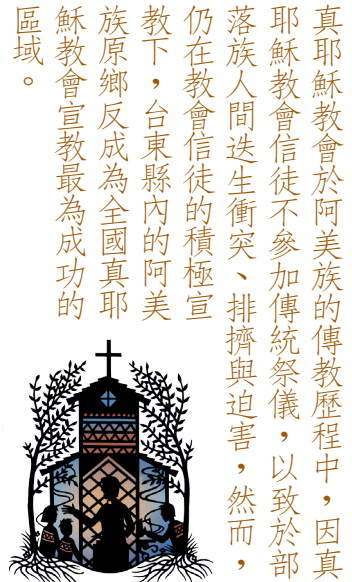 真耶穌教會於阿美族的傳教歷程中，因真
耶穌教會信徒不參加傳統祭儀，以致於部
落族人間迭生衝突、排擠與迫害，然而，
仍在教會信徒的積極宣
教下，台東縣內的阿美
族原鄉反成為全國真耶
穌教會宣教最為成功的
區域。